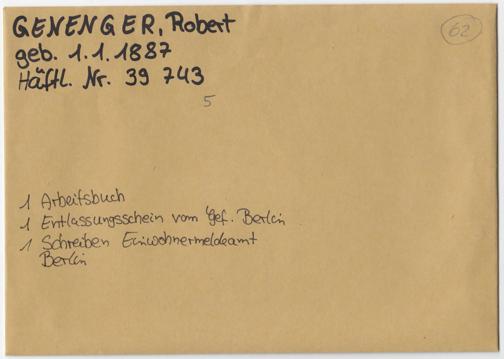 GENENGER, Robert
geb. 1.1.1887
Häftl. Nr. 39 743
62
5
1 Arbeitsbuch
1 Entlassungsschein vom Gef. Berlin
1 Schreiben Einwohnermeldeamt
Berlin